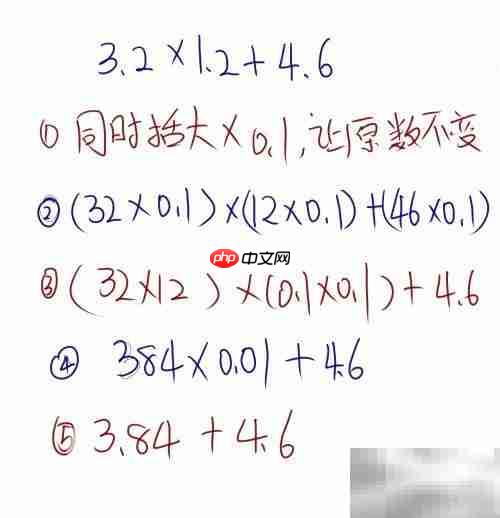 3.2×1.2+4.6
① 同时括大×0.1,让原数不变
②(32×0.1)×(12×0.1)+(46×0.1)
php 中文网
③(32×12)×(0.1×0.1)+4.6
④ 384×0.01+4.6
⑤ 3.84+4.6